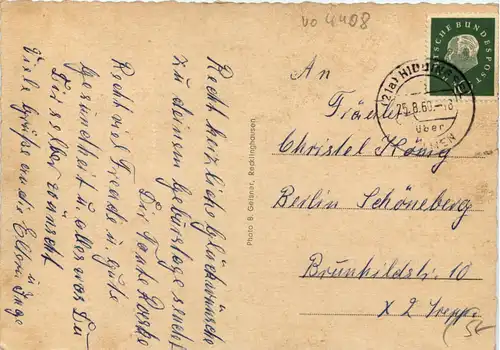 vo 4408
Recht herzliche Glückwünsche
zu deinem Geburtstage sendet
Dir Tante
Recht viel Freude u. gute
Gesundheit u. alles was Du
Dir selber wünscht
Viele Grüße an die Eltern u. Inge
Photo B. Gelzner, Recklinghausen
DEUTSCHE BUNDESPOST
25.8.60
über
An
Fräulein
Christel König
Berlin Schöneberg
Brünhildstr. 10
X 2 Trepp.